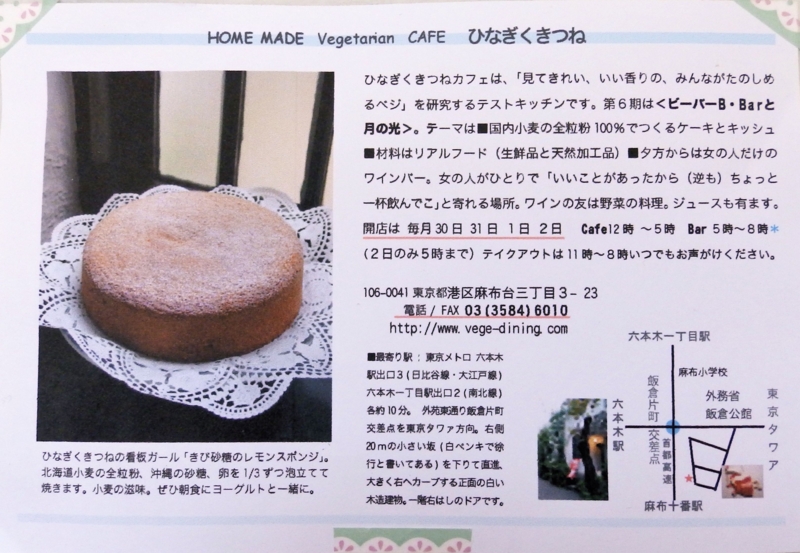 HOME MADE Vegetarian CAFE ひなぎくきつね
ひなぎくきつねカフェは、「見てきれい、いい香りの、みんながたのしめ
るベジ」を研究するテストキッチンです。第６期は＜ビーバーB・Barと
月の光＞。テーマは■国内小麦の全粒粉100％でつくるケーキとキッシュ
■材料はリアルフード（生鮮品と天然加工品）■夕方からは女の人だけの
ワインバー。女の人がひとりで「いいことがあったから（逆も）ちょっと
一杯飲んでこ」と寄れる場所。ワインの友は野菜の料理。ジュースも有ます。
開店は 毎月30日 31日 1日 2日 Cafe12時～5時 Bar 5時～8時*
（2日のみ5時まで）テイクアウトは11時～8時いつでもお声がけください。
106-0041 東京都港区麻布台三丁目3－23
電話 / FAX 03 (3584) 6010
http://www.vege-dining.com
■最寄り駅：東京メトロ 六本木
駅出口3（日比谷線・大江戸線）
六本木一丁目駅出口2（南北線）
各約10分。 外苑東通り飯倉片町
交差点を東京タワア方向。右側
20mの小さい坂（白ペンキで徐
行と書いてある）を下りて直進、
大きく右へカーブする正面の白い
木造建物。一階右はしのドアです。
六本木一丁目駅
麻布小学校
外務省
飯倉公館
飯倉片町
交差点
六本木駅
首都高速
東京タワア
麻布十番駅
ひなぎくきつねの看板ガール「きび砂糖のレモンスポンジ」。
北海道小麦の全粒粉、沖縄の砂糖、卵を1/3ずつ泡立てて
焼きます。小麦の滋味。ぜひ朝食にヨーグルトと一緒に。